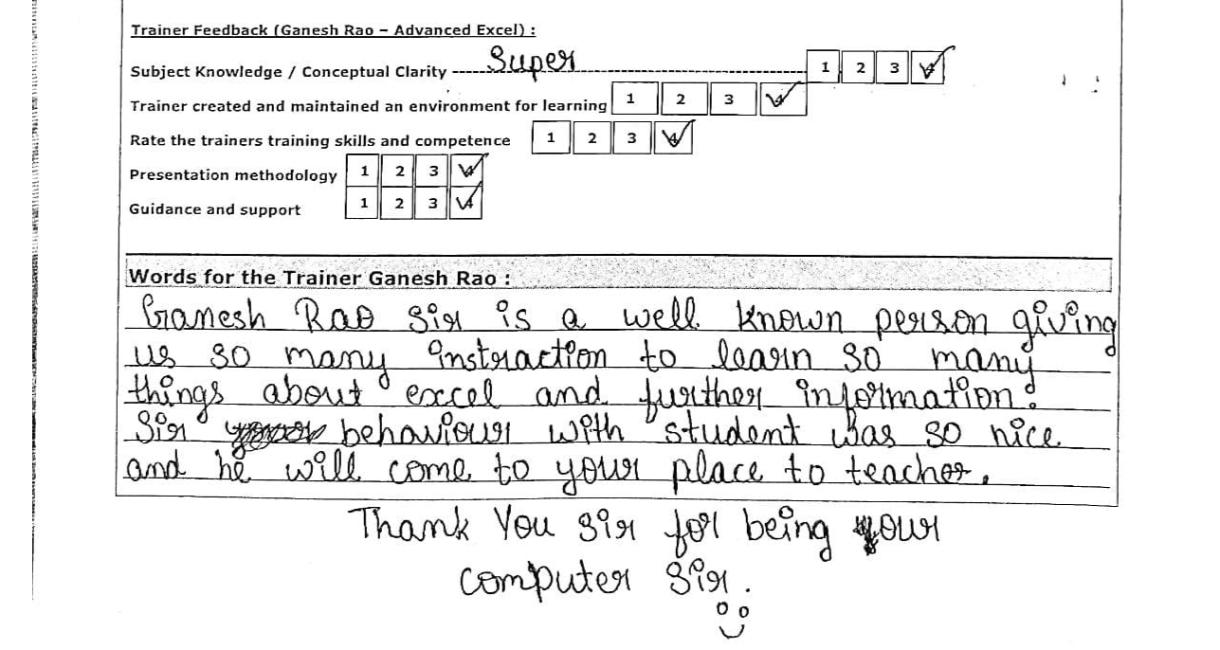 Trainer Feedback (Ganesh Rao – Advanced Excel) :
Subject Knowledge / Conceptual Clarity ----Super---- 1 2 3 4
Trainer created and maintained an environment for learning 1 2 3 4
Rate the trainers training skills and competence 1 2 3 4
Presentation methodology 1 2 3 4
Guidance and support 1 2 3 4
Words for the Trainer Ganesh Rao :
Ganesh Rao Sir is a well known person giving
us so many instraction to learn so many
things about excel and further information.
Sir behaviour with student was so nice
and he will come to your place to teacher.
Thank You sir for being our
computer Sir.